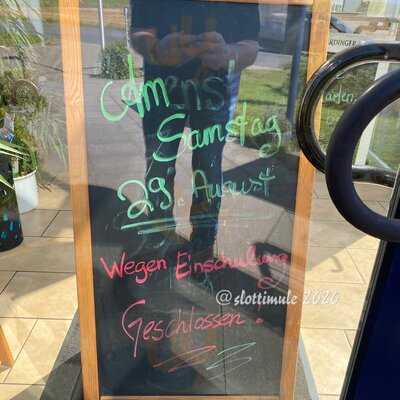 Am
Samstag
29. August
Wegen Einschulung
Geschlossen!
@slottimule 2020